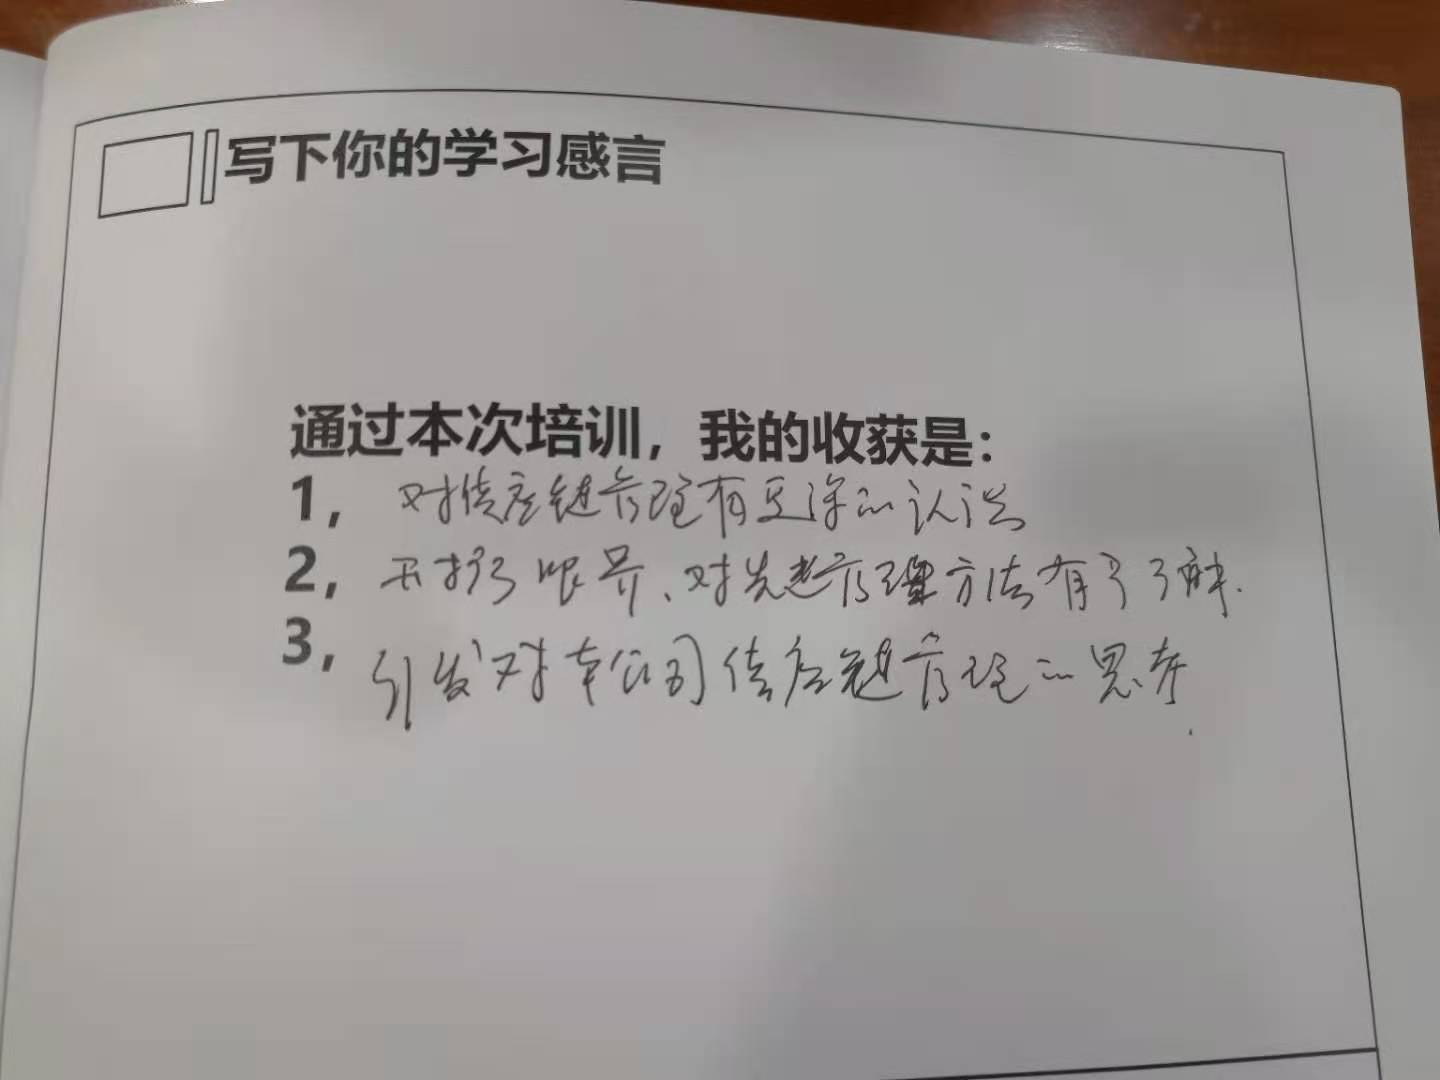 写下你的学习感言
通过本次培训，我的收获是：
1，对供应链管理有更深的认识
2，开拓了眼界、对先进管理方法有了了解.
3，引发对本公司供应链管理的思考.